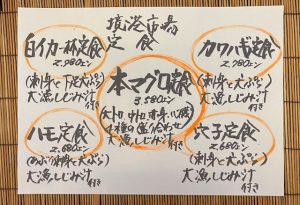 境港市場
定食
白イカ一杯定食
2,980エン
(刺身と下足天ぷら)
大漁しじみ汁
付き
カワハギ定食
2,780エン
(刺身と天ぷら)
大漁しじみ汁
付き
本マグロ定食
3,580エン
4種の盛り合わせ
大漁しじみ汁
付き
ハモ定食
2,680エン
(あぶり刺身と天ぷら)
大漁しじみ汁
付き
穴子定食
2,680エン
(刺身と天ぷら)
大漁しじみ汁
付き